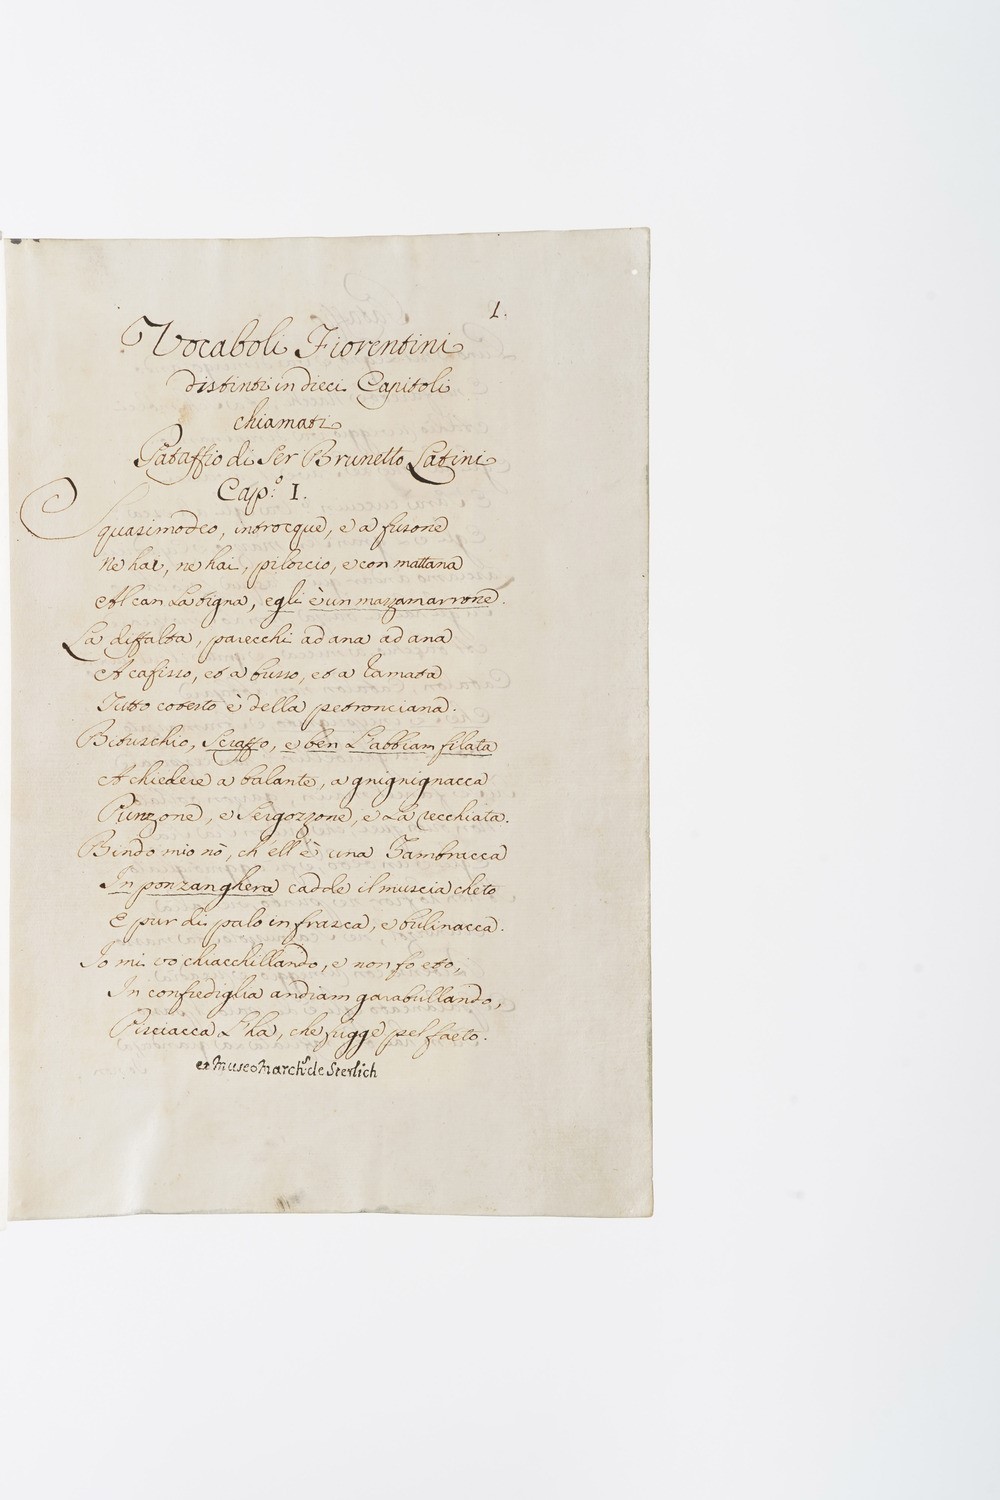 1.
Vocaboli Fiorentini
distinti in dieci Capitoli
chiamati
Pataffio di Ser Brunetto Latini
Cap.º I.
Squasimodeo, introcque, e a fusone
Ne hai, ne hai, pilorcio, e con mattana
Al can la tigna, egli è un mazzamarrone.
La difalta, parecchi ad ana ad ana
A cafisso, et a busso, et a ramata
Tutto coverto è della petronciana.
Bituschio, scraffo, e ben l'abbiam filata
A chiedere a balante, a gnignignacca
Punzone, e sergozzone, e la recchiata.
Bindo mio nò, ch'ell'è una zambracca
In ponzanghera cadde il muscia cheto
E pur di palo in frasca, e bulinacca.
Io mi vo chiacchillando, e non fo eto,
In confrediglia andiam garabullando,
Pisciacca l'ha, che fugge pel faeto.
ex Museo March.s de Sterlich